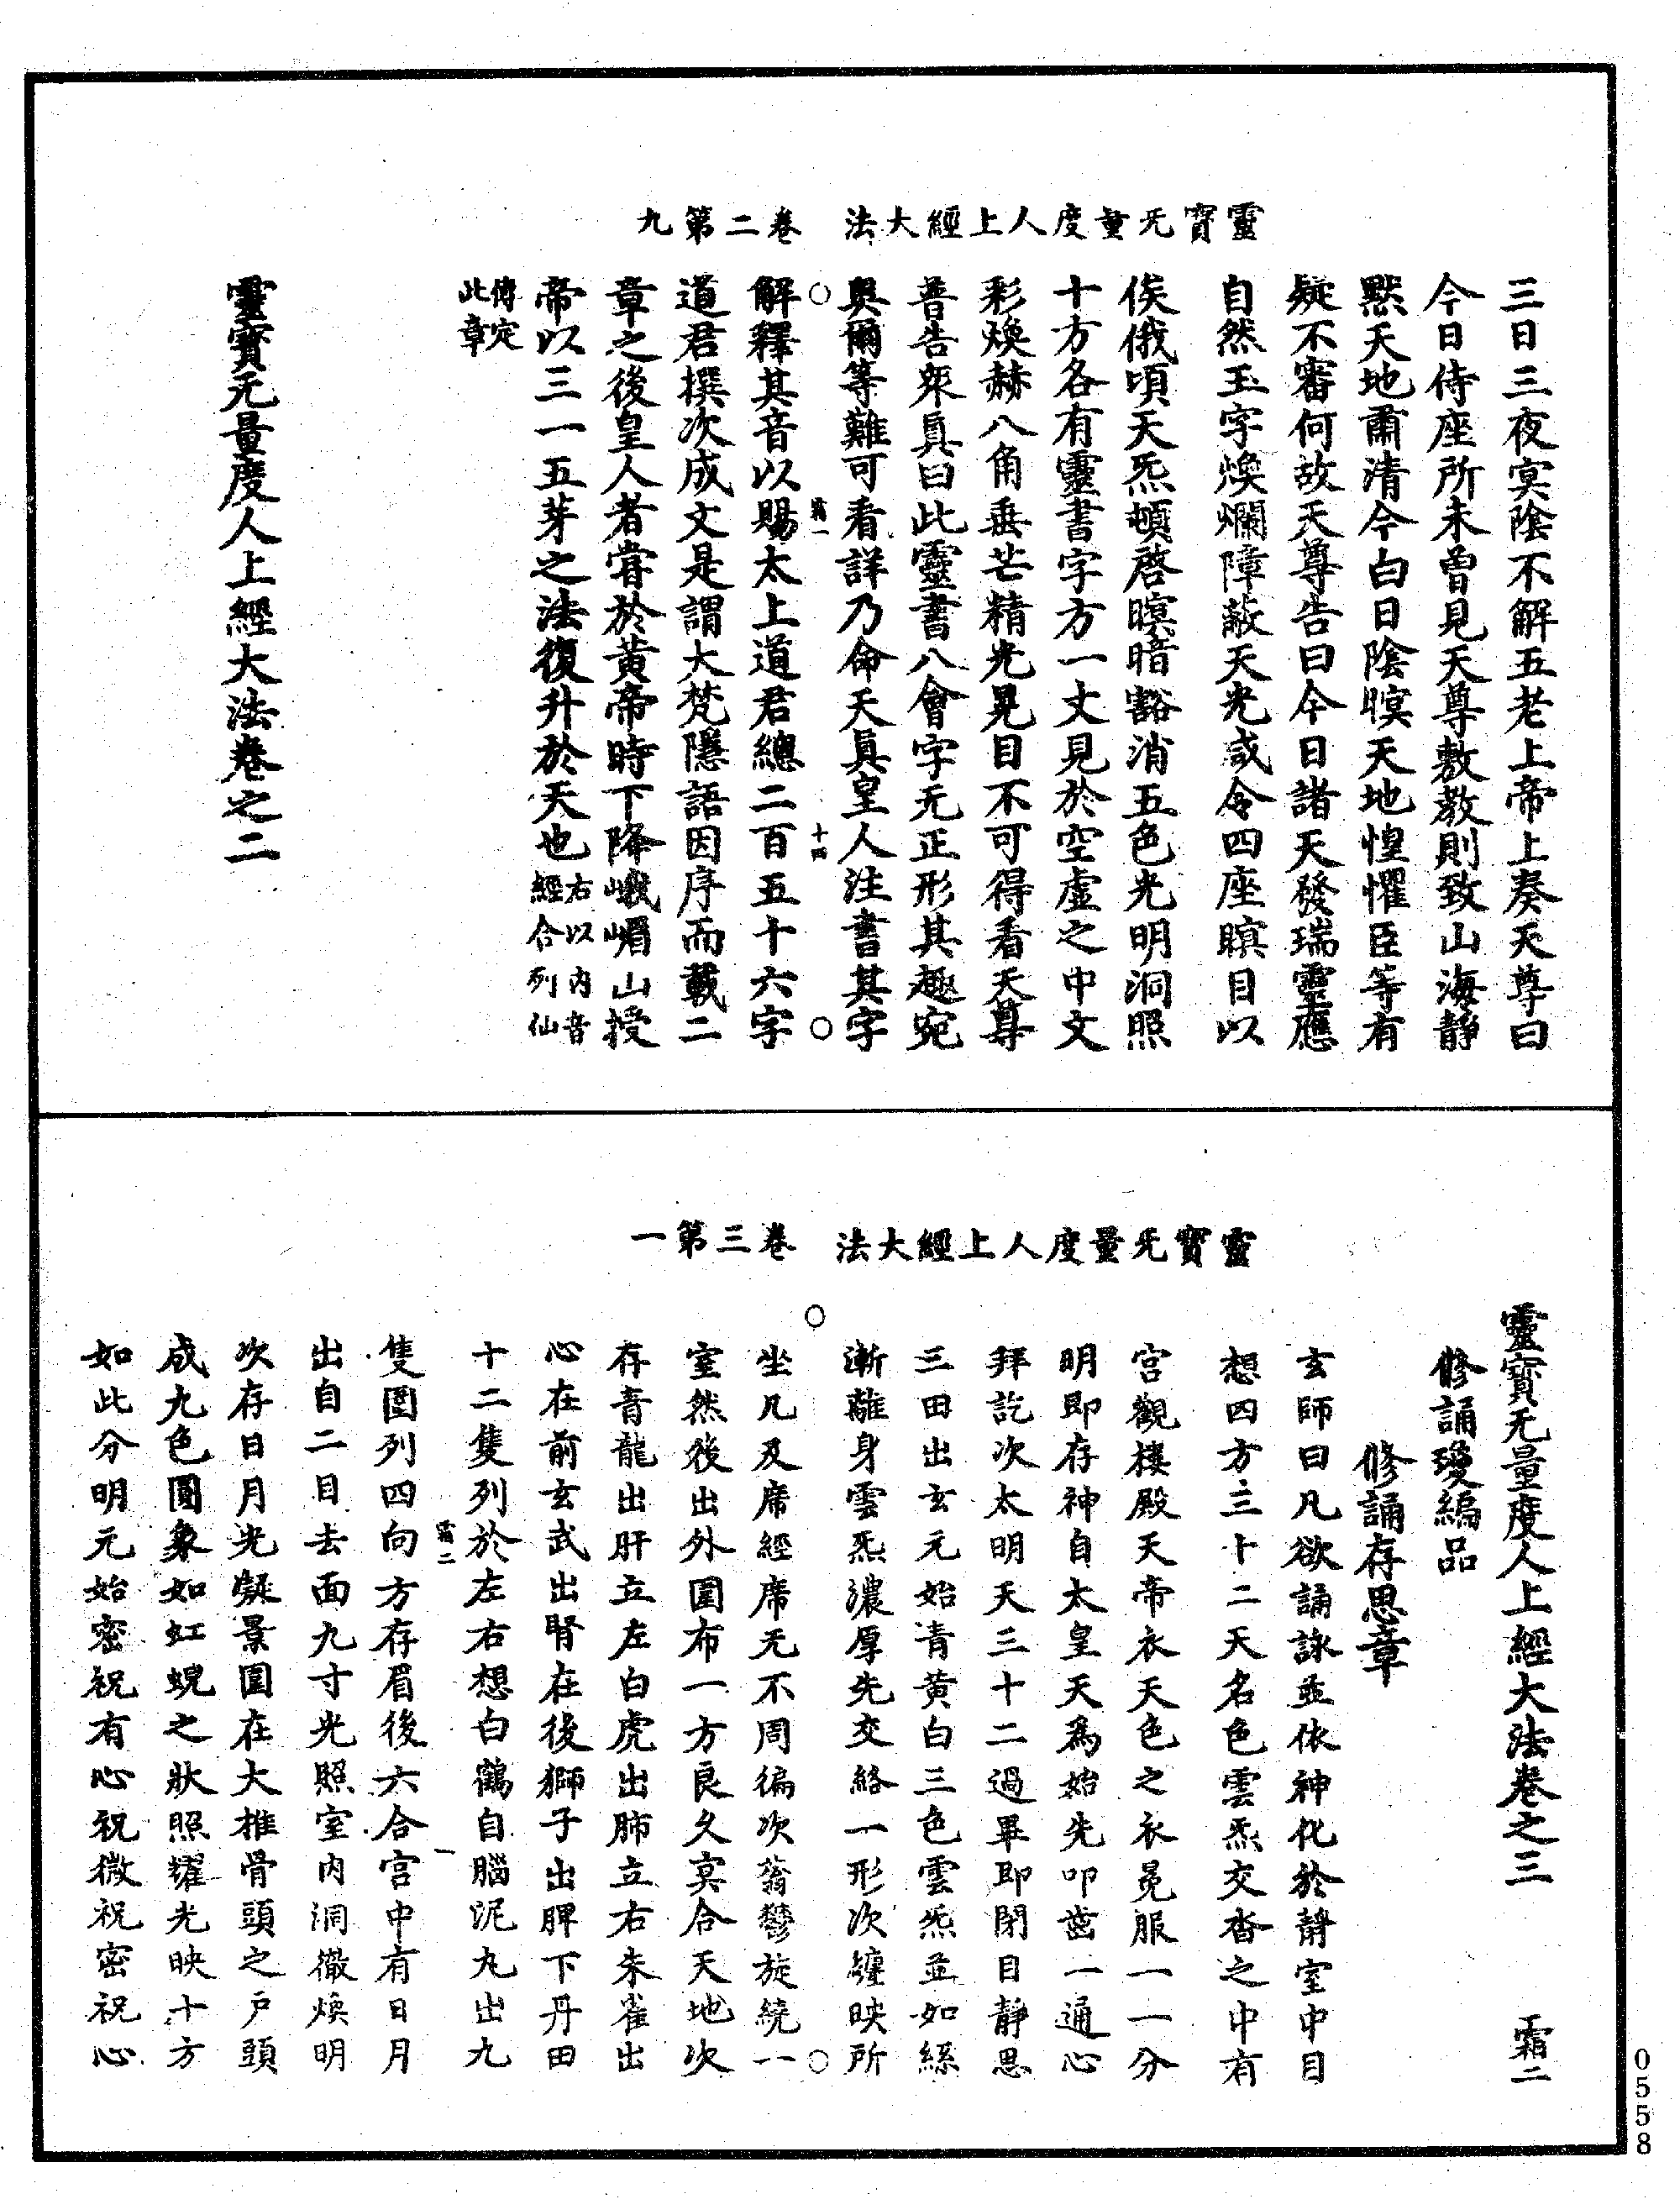 靈寶无量度人上經大法　卷二第九
三日三夜冥陰不解五老上帝上奏天尊曰
今日侍座所未曾見天尊敷教則致山海靜
黙天地肅清今白日陰暝天地惶懼臣等有
疑不審何故天尊告曰今日諸天發瑞靈應
自然玉字煥爛障蔽天光咸令四座瞑目以
俟俄頃天炁頓啓暝暗豁消五色光明洞照
十方各有靈書字方一丈見於空虛之中文
彩煥赫八角垂芒精光晃目不可得看天尊
普告衆真曰此靈書八會字无正形其趣宛
奧爾等難可看詳乃命天真皇人注書其字
霜一　十四
解釋其音以賜太上道君總二百五十六字
道君撰次成文是謂大梵隱語因序而載二
章之後皇人者嘗於黄帝時下降峨嵋山授
帝以三一五芽之法復升於天也右以內音
經合列仙
傳定
此章
靈寶无量度人上經大法卷之二
靈寶无量度人上經大法　卷三第一
靈寶无量度人上經大法卷之三　霜二
修誦瓊編品
修誦存思章
玄師曰凡欲誦詠並依神化於靜室中目
想四方三十二天名色雲炁交沓之中有
宮觀樓殿天帝衣天色之衣冕服一一分
明即存神自太皇天爲始先叩齒一通心
拜訖次太明天三十二過畢即閉目靜思
三田出玄元始青黄白三色雲炁並如絲
漸離身雲炁濃厚先交絡一形次纏映所
坐凡及席經席无不周徧次蓊鬱旋繞一
室然後出外圍布一方良久冥合天地次
存青龍出肝立左白虎出肺立右朱雀出
心在前玄武出腎在後獅子出脾下丹田
十二隻列於左右想白鶴自腦泥丸出九
霜二　一
隻圍列四向方存眉後六合宮中有日月
出自二目去面九寸光照室内洞徹煥明
次存日月光凝景圍在大椎骨頭之戶頭
成九色圓象如虹蜺之狀照耀光映十方
如此分明元始密祝有心祝微祝密祝心
0558